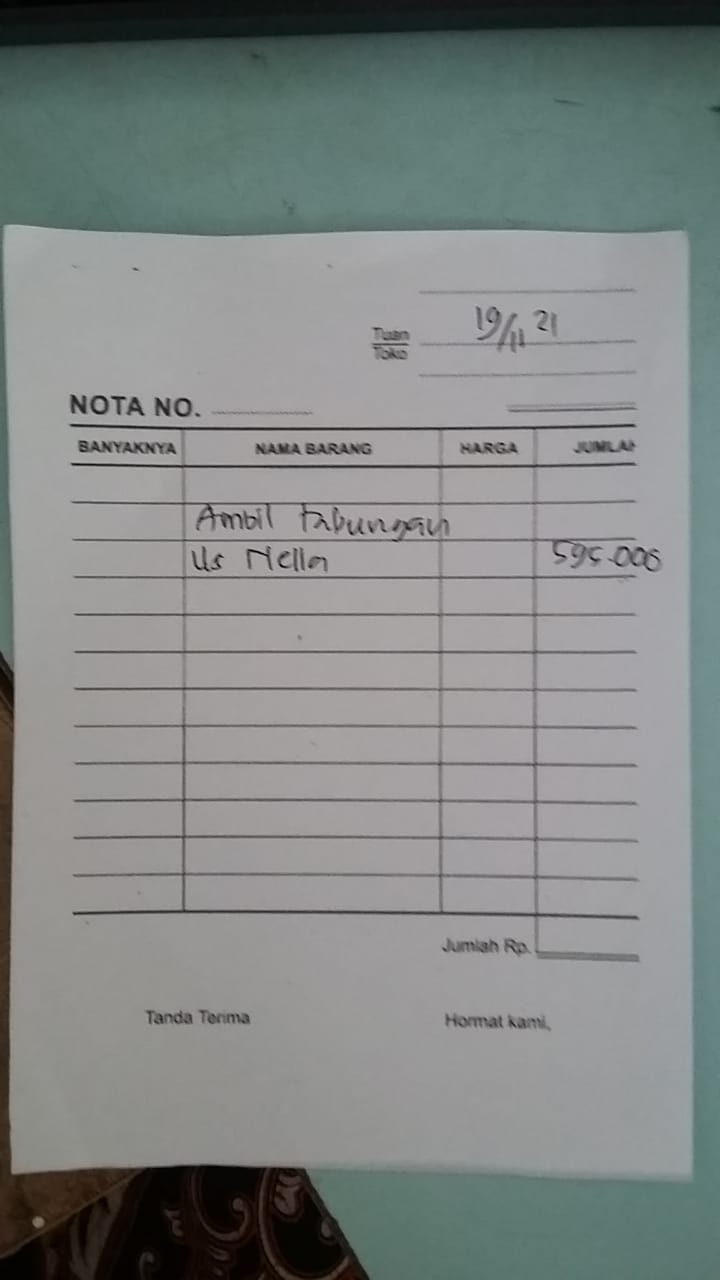 19/11 21
Tuan
Toko
NOTA NO.
BANYAKNYA NAMA BARANG HARGA JUMLAH
Ambil tabungan
Us Nella 595.000
Jumlah Rp.
Tanda Terima Hormat kami,